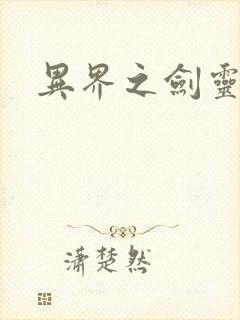 異界之劍靈
瀟楚然